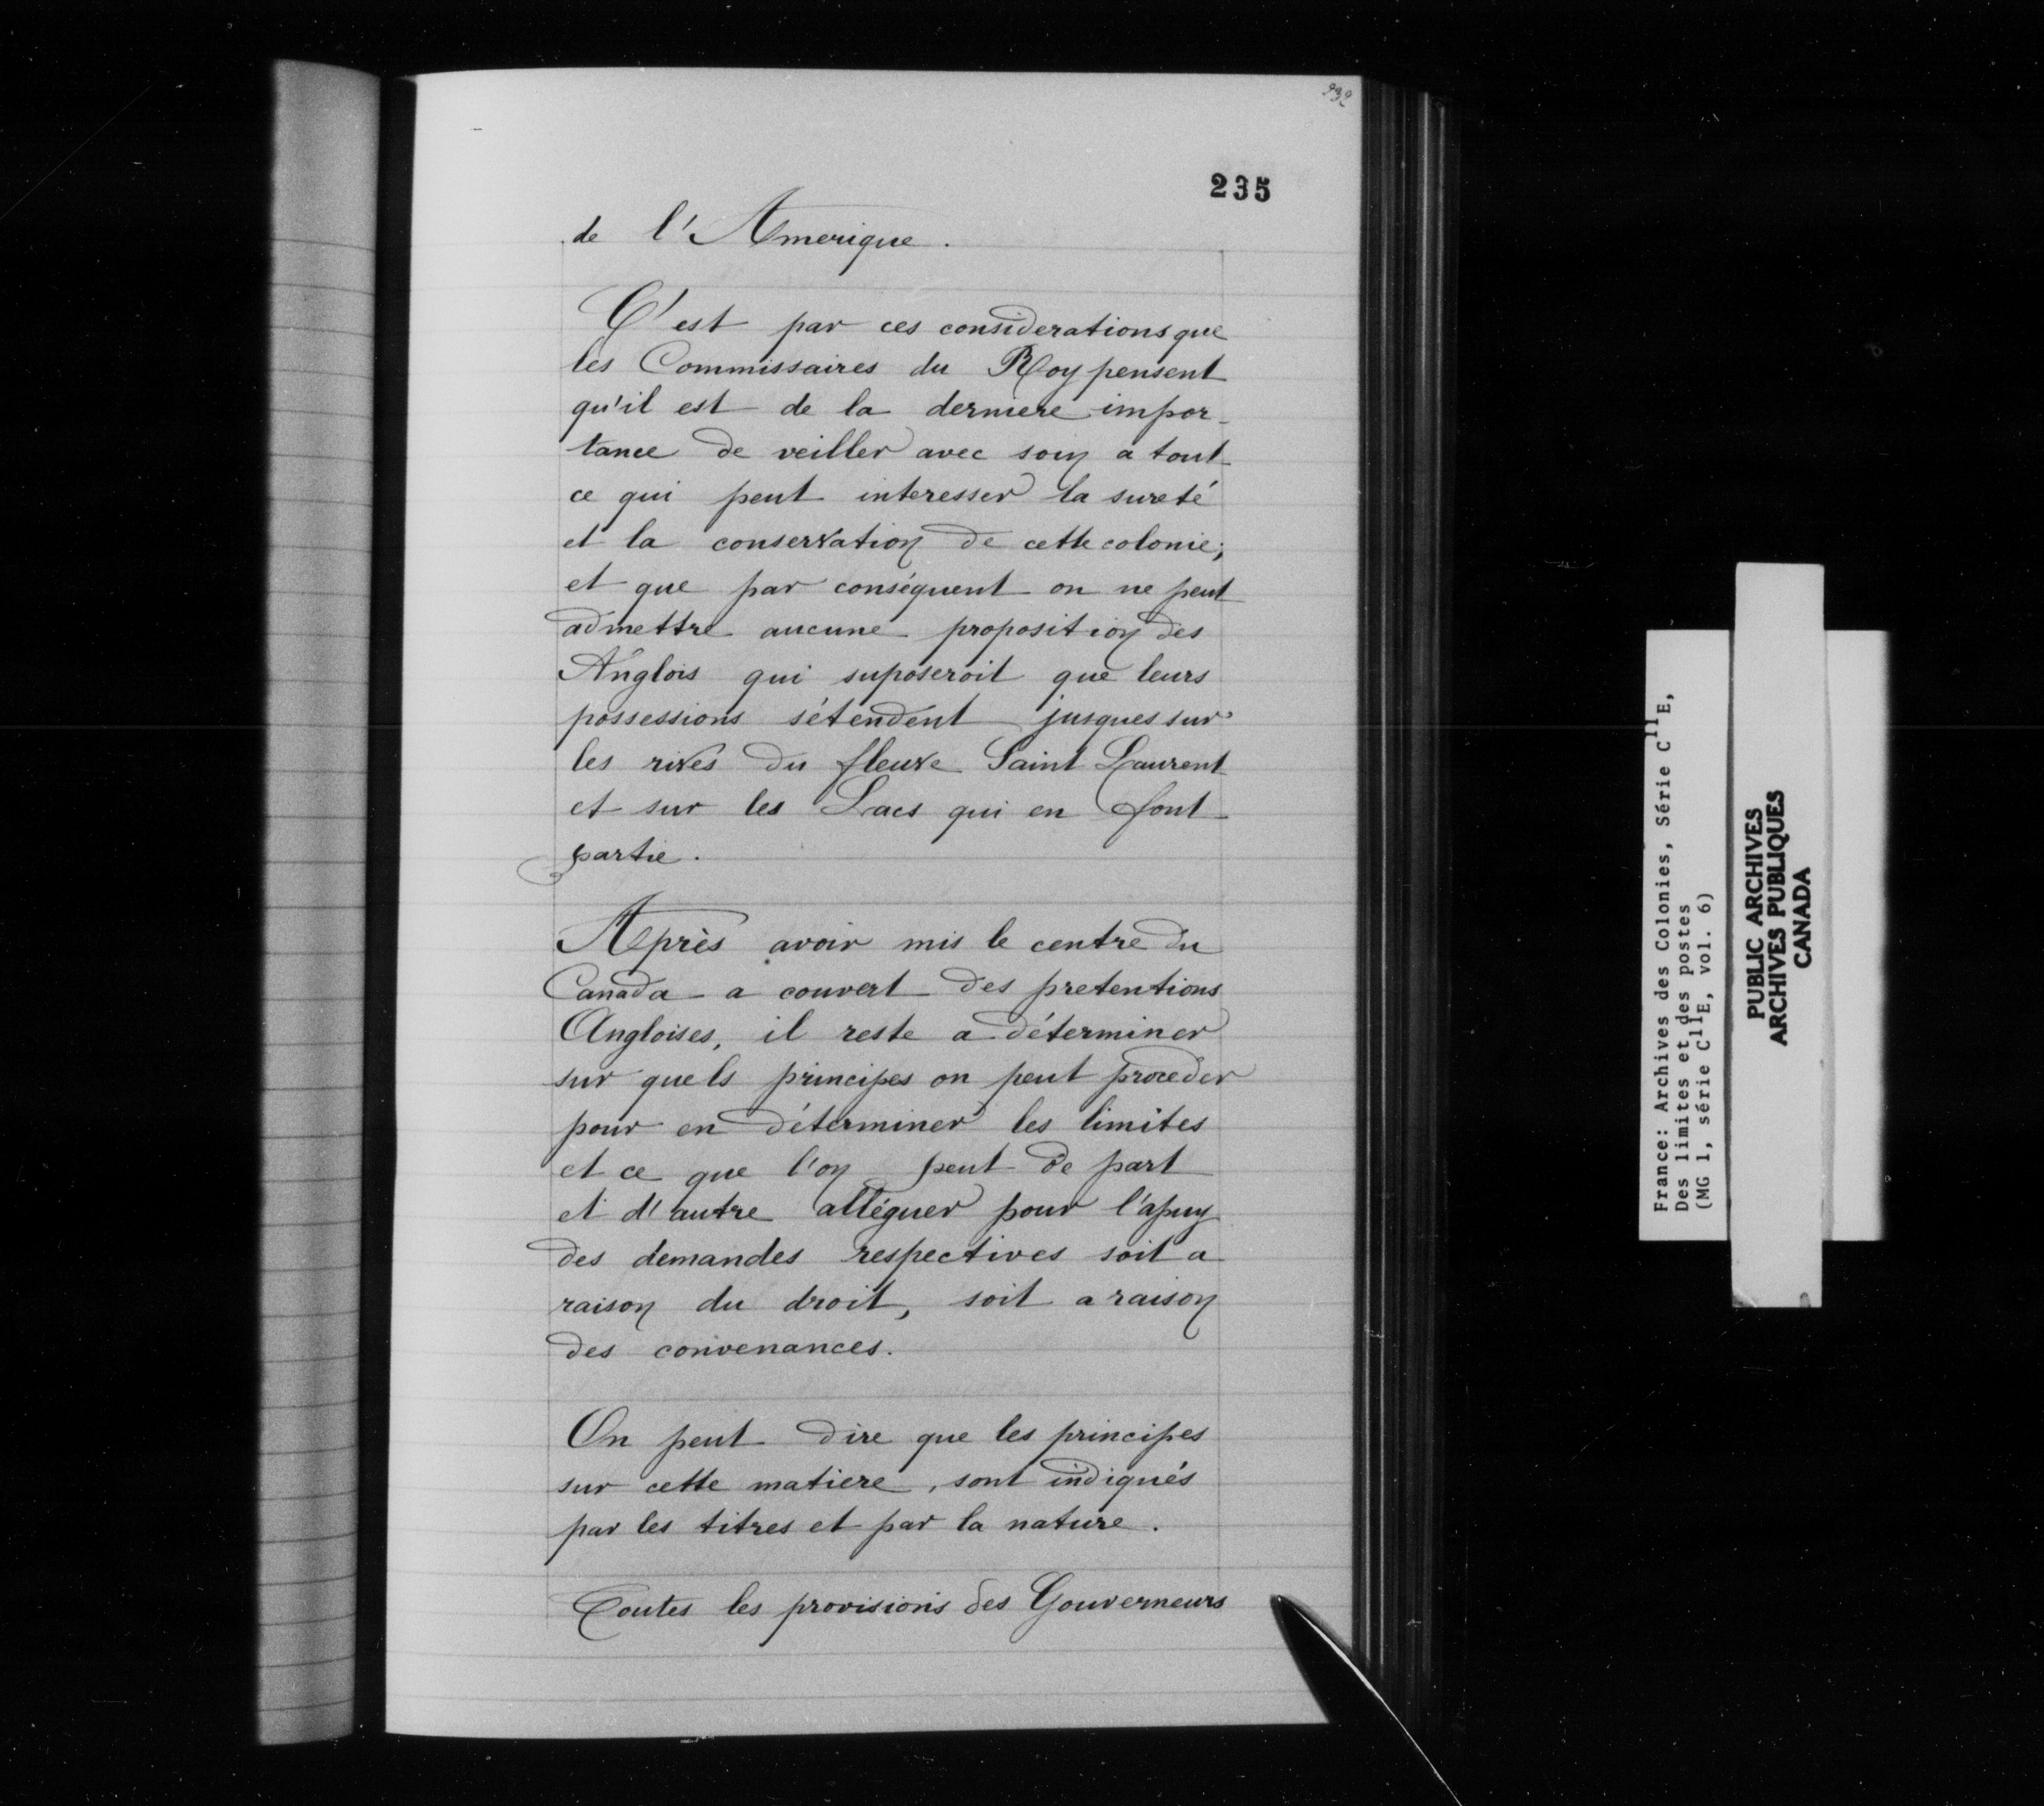 235
de l'Amerique.
C'est par ces considerations que
les Commissaires du Roy pensent
qu'il est de la derniere impor-
tance de veiller avec soin a tout
ce qui peut interesser la sureté
et la conservation de cette colonie;
et que par conséquent on ne peut
admettre aucune proposition des
Anglois qui suposeroit que leurs
possessions s'étendent jusques sur
les rives du fleuve Saint Laurent
et sur les Lacs qui en font
partie.
Après avoir mis le centre du
Canada a couvert des pretentions
Angloises, il reste a déterminer
sur quels principes on peut proceder
pour en déterminer les limites
et ce que l'on peut de part
et d'autre alléguer pour l'apuy
des demandes respectives soit a
raison du droit, soit a raison
des convenances.
On peut dire que les principes
sur cette matiere, sont indiqués
par les titres et par la nature.
Toutes les provisions des Gouverneurs
France: Archives des Colonies, Série C11E,
Des limites et des postes
(MG 1, série C11E, vol. 6)
PUBLIC ARCHIVES
ARCHIVES PUBLIQUES
CANADA